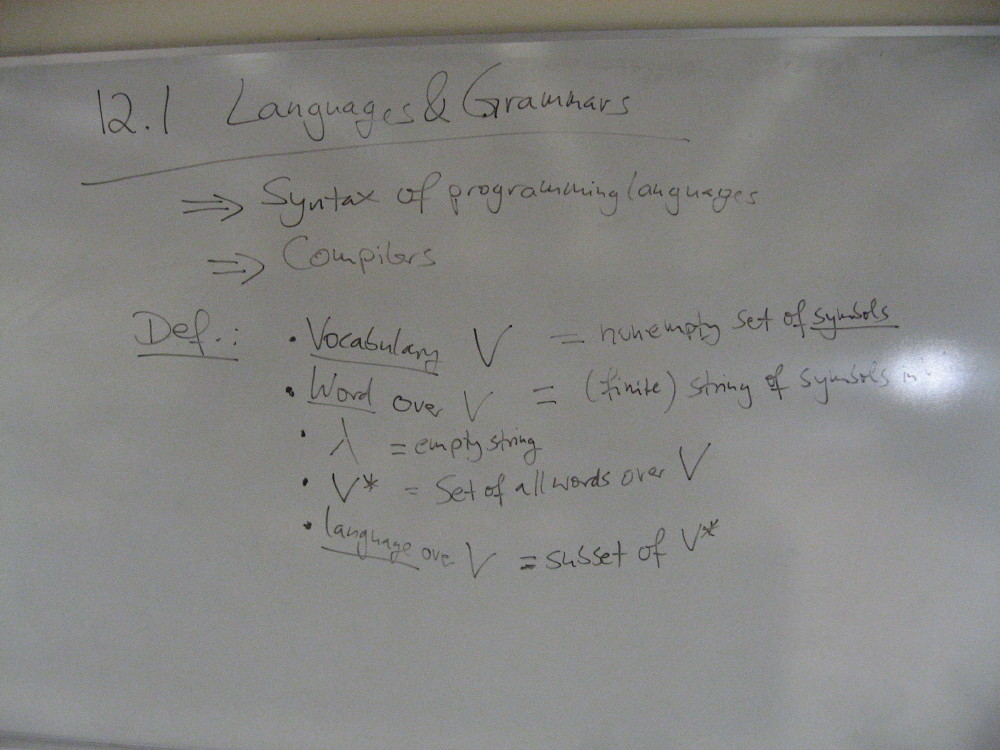 12.1 Languages & Grammars
⇒ Syntax of programming languages
⇒ Compilers
Def.: • Vocabulary V = nonempty set of symbols
• Word over V = (finite) string of symbols in
• λ = empty string
• V* = Set of all words over V
• language over V = subset of V*